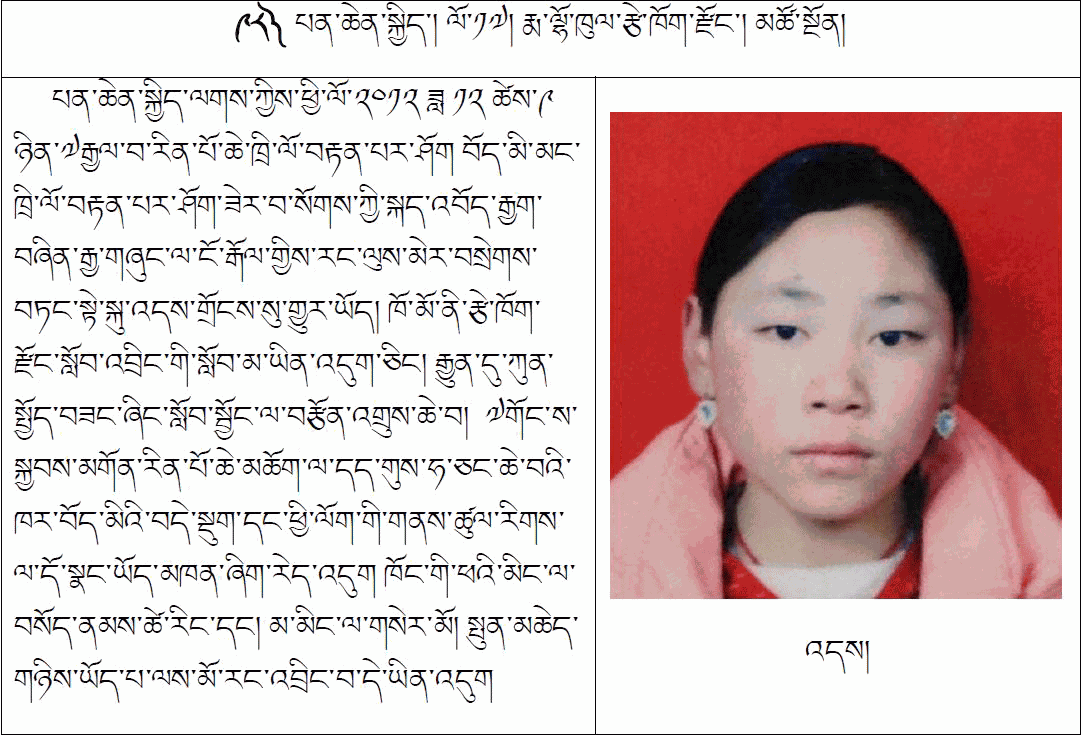 ༩༥༽ པན་ཆེན་སྐྱིད། ལོ་༡༧། རྨ་ལྷོ་ཁུལ་རྩེ་ཁོག་རྫོང་། མཚོ་སྔོན།
པན་ཆེན་སྐྱིད་ལགས་ཀྱིས་ཕྱི་ལོ་༢༠༡༢ ཟླ ༡༢ ཚེས་༩
ཉིན་༧རྒྱལ་བ་རིན་པོ་ཆེ་ཁྲི་ལོ་བརྟན་པར་ཤོག བོད་མི་མང་
ཁྲི་ལོ་བརྟན་པར་ཤོག་ཟེར་བ་སོགས་ཀྱི་སྐད་འབོད་རྒྱག་
བཞིན་རྒྱ་གཞུང་ལ་ངོ་རྒོལ་གྱིས་རང་ལུས་མེར་བསྲེགས་
བཏང་སྟེ་སྐུ་འདས་གྲོངས་སུ་གྱུར་ཡོད། ཁོ་མོ་ནི་རྩེ་ཁོག་
རྫོང་སློབ་འབྲིང་གི་སློབ་མ་ཡིན་འདུག་ཅིང། རྒྱུན་དུ་ཀུན་
སྤྱོད་བཟང་ཞིང་སློབ་སྦྱོང་ལ་བརྩོན་འགྲུས་ཆེ་བ། ༧གོང་ས་
སྐྱབས་མགོན་རིན་པོ་ཆེ་མཆོག་ལ་དད་གུས་ཧ་ཅང་ཆེ་བའི་
ཁར་བོད་མིའི་བདེ་སྡུག་དང་ཕྱི་ལོག་གི་གནས་ཚུལ་རིགས་
ལ་དོ་སྣང་ཡོད་མཁན་ཞིག་རེད་འདུག ཁོང་གི་ཕའི་མིང་ལ་
བསོད་ནམས་ཚེ་རིང་དང། མ་མིང་ལ་གསེར་མོ། སྤུན་མཆེད་
གཉིས་ཡོད་པ་ལས་མོ་རང་འབྲིང་བ་དེ་ཡིན་འདུག
འདས།